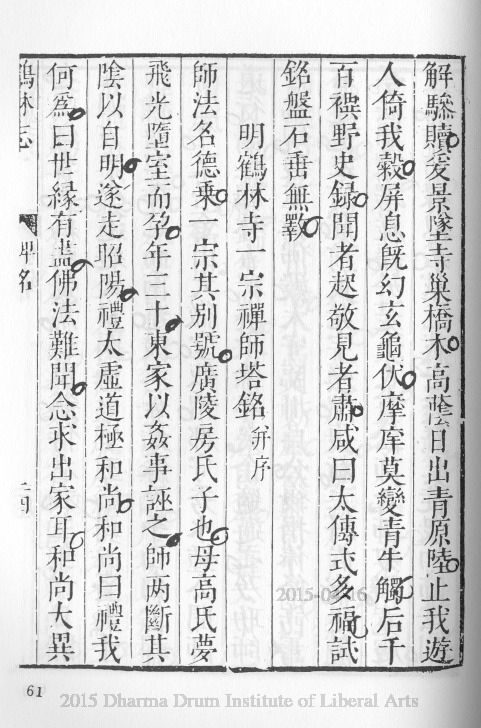 解驂贖爰景墜寺巢橋木高蔭日出青原陸止我遊
人倚我穀屏息既幻玄龜伏摩庠莫變青牛觸后千
百禩野史録聞者起敬見者肅咸曰太傳式多福試
銘盤石垂無斁
明鶴林寺一宗禪師塔銘 并序
師法名德乗一宗其别號廣陵房氏子也母高氏夢
飛光墮室而孕年三十東家以姦事誣之師两斷其
陰以自明遂走昭陽禮太虛道極和尚和尚曰禮我
何爲曰世緣有盡佛法難聞念求出家耳和尚大異
鶴林志
61
2015-04-16
2015 Dharma Drum Institute of Liberal Arts